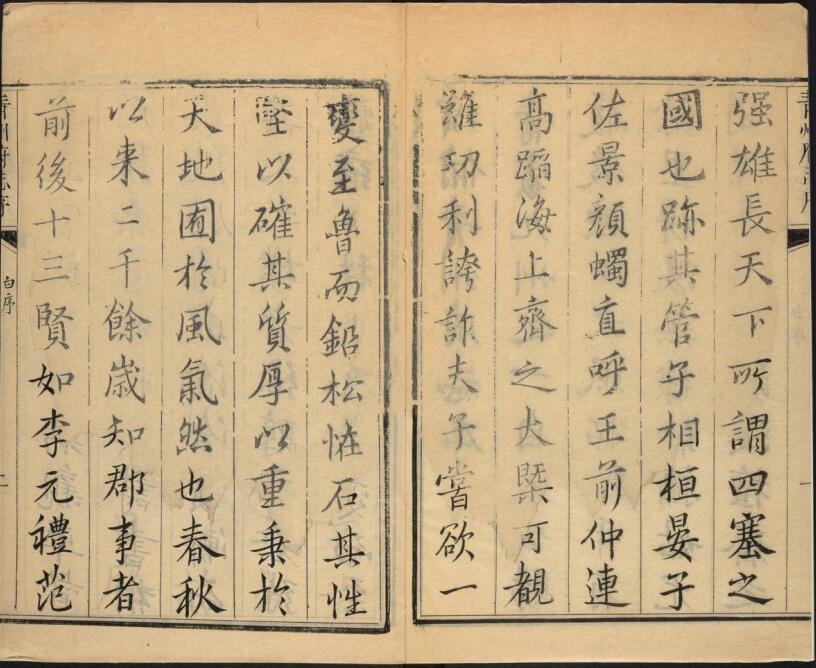 强雄長天下所謂四塞之
國也跡其管子相桓晏子
佐景顔蠋直呼王前仲連
高蹈海上齊之大槩可覩
雖功利誇詐夫子嘗欲一
變至魯而鉛松怪石其性
堅以確其質厚以重秉於
天地囿於風氣然也春秋
以来二千餘歲知郡事者
前後十三賢如李元禮范
青州府志序
白序